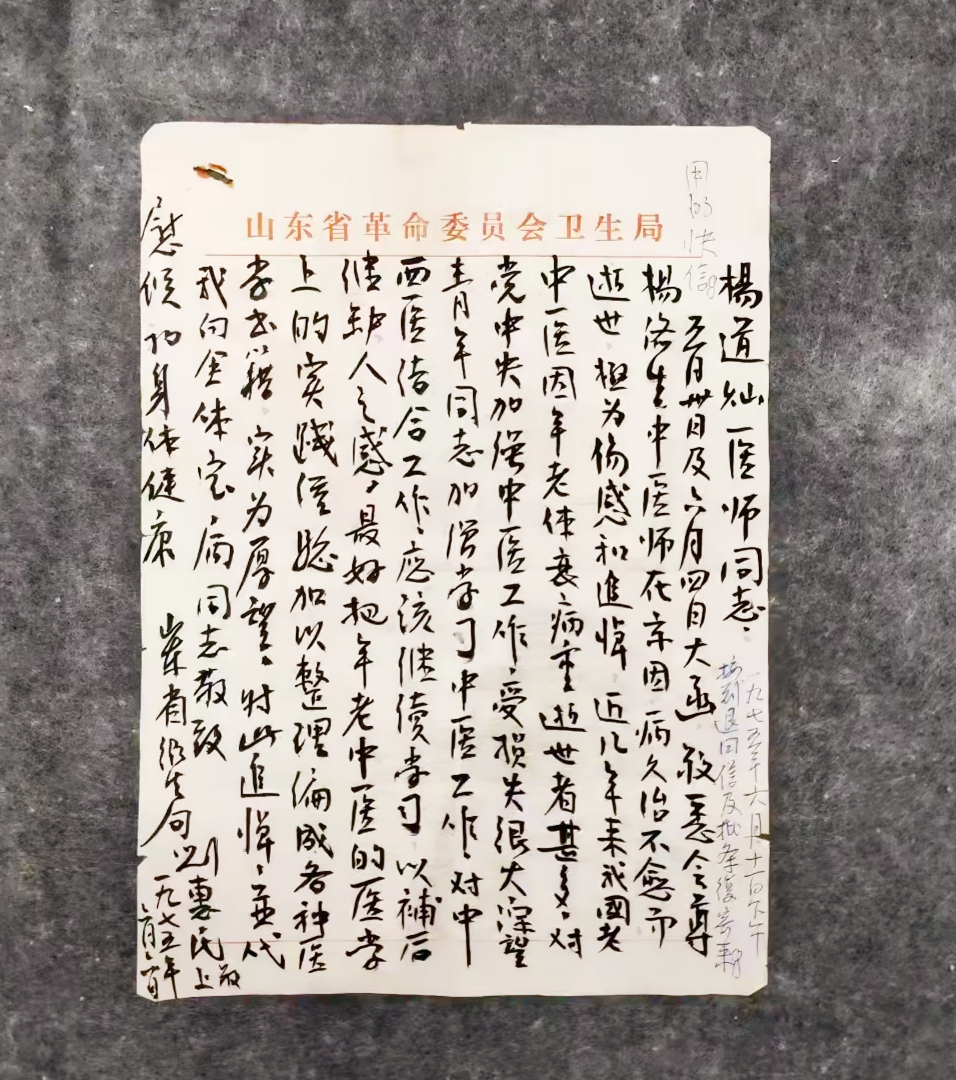 山东省革命委员会卫生局
用的快信
楊道灿医师同志：
五月卅日及六月四日大函敬悉令尊
楊洛生中医师在京因病久治不愈而
逝世，極为伤感和追悼。近几年来我國老
中医因年老体衰病重逝世者甚多，对
党中央加强中医工作，受损失很大深望
青年同志加强学习中医工作，对中
西医结合工作，应该继续学习，以補后
继缺人之感，最好把年老中医的医学
上的实践经验加以整理编成各种医
学书籍，实为厚望。对此追悼，並代
我向全体家属同志敬致
慰候 祝身体健康
山东省衛生局 刘惠民 敬上
一九七五年
六月六日
一九七五年六月十一日下午
接到退回信及批条復寄